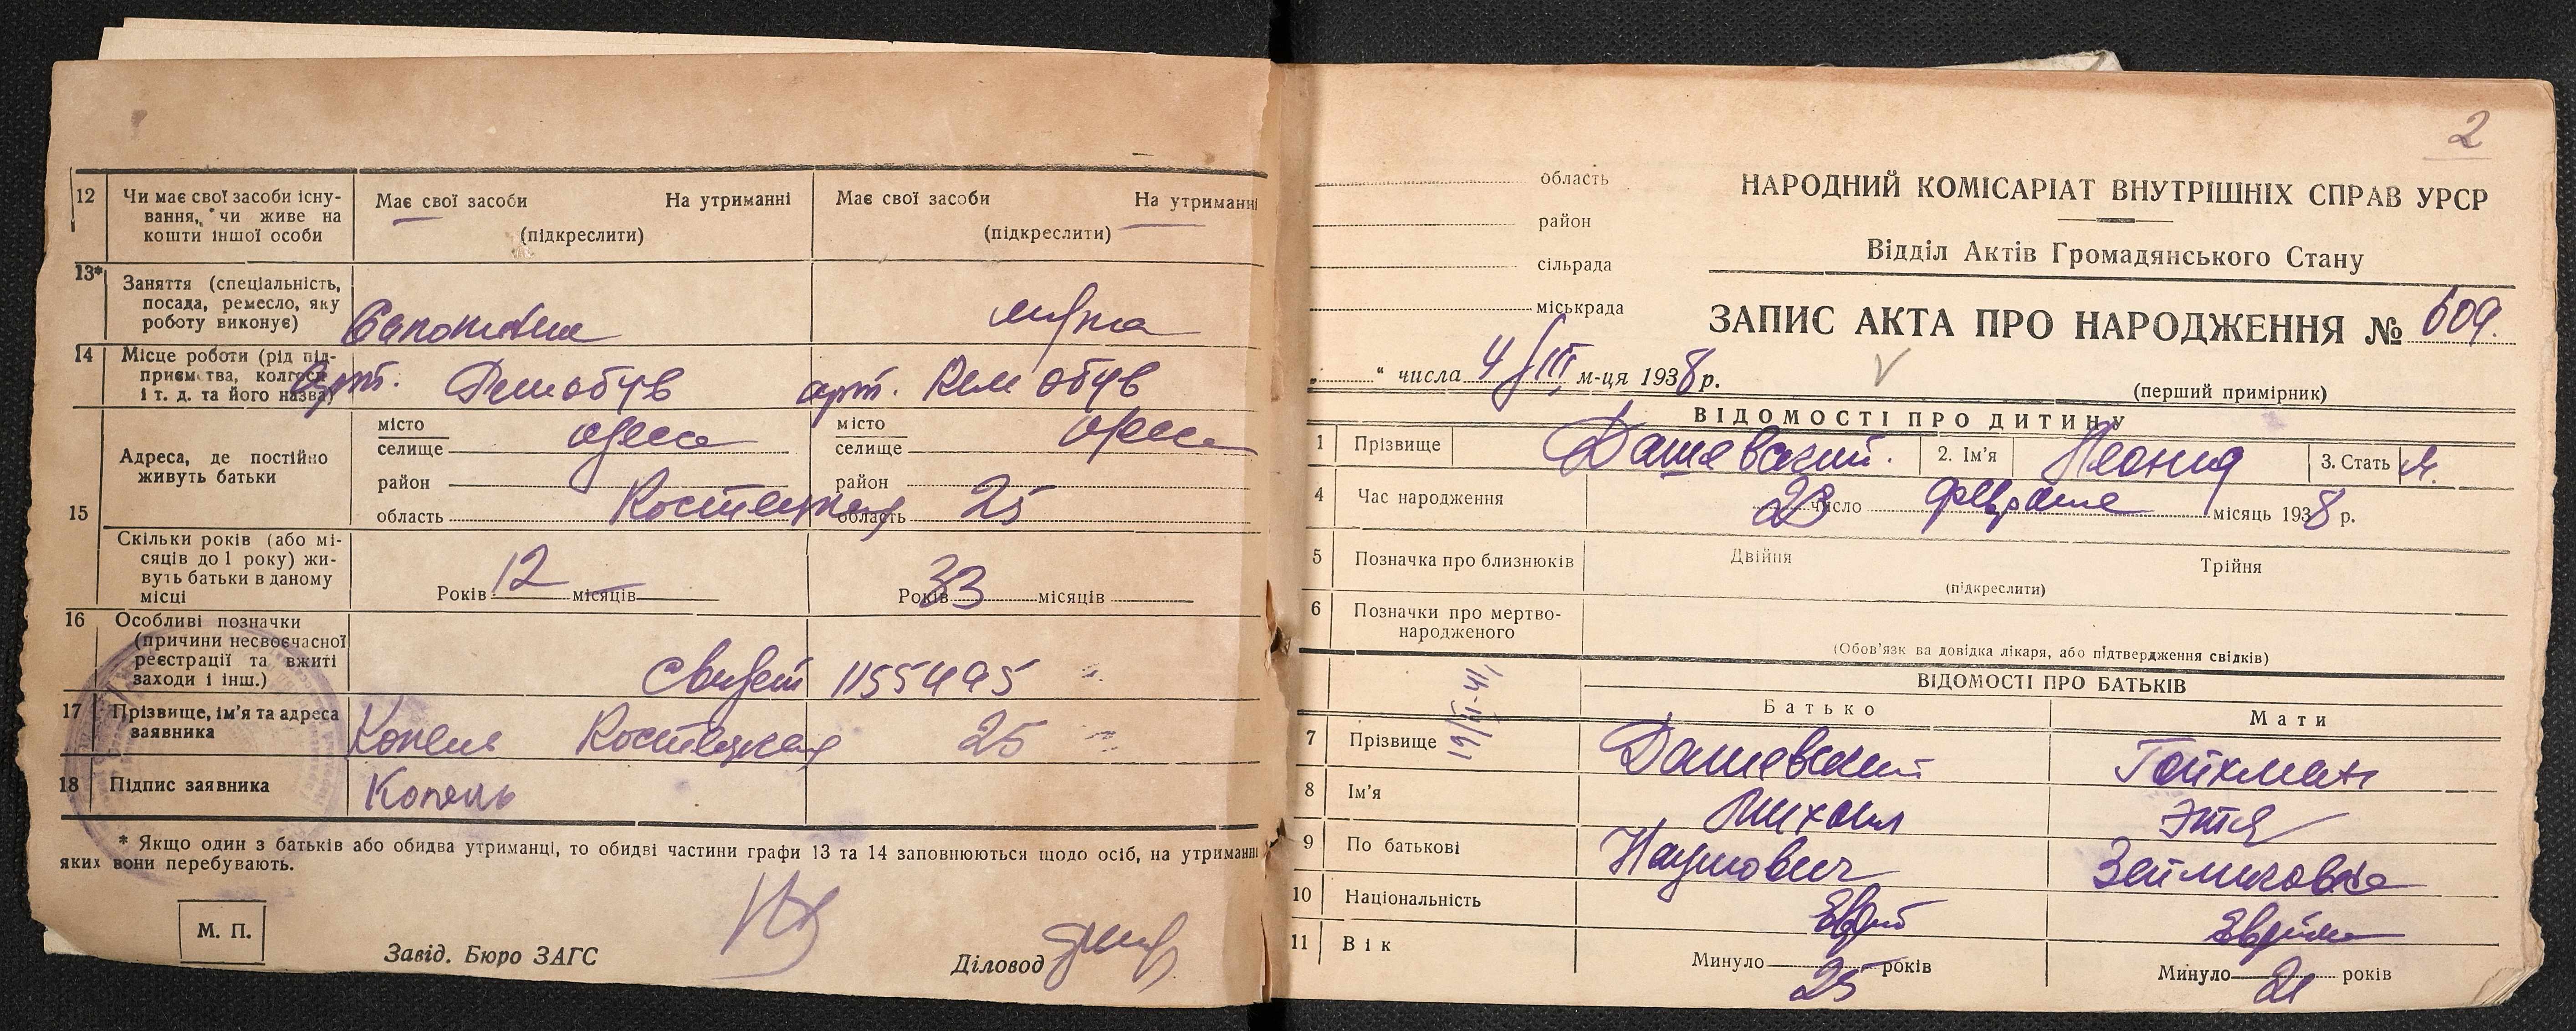 12 Чи має свої засоби існу-
вання, чи живе на
кошти іншої особи
Має свої засоби На утриманні
(підкреслити)
Має свої засоби На утриманні
(підкреслити)
13* Заняття (спеціальність,
посада, ремесло, яку
роботу виконує)
14 Місце роботи (рід під-
приємства, колгосп
і т. д. та його назва)
арт. Ремобув
арт. Ремобув
15 Адреса, де постійно
живуть батьки
місто
селище Одесса
район
область Костецкая
місто
селище Одесса
район
область 25
Скільки років (або мі-
сяців до 1 року) жи-
вуть батьки в даному
місці
Років 12 місяців
Років 33 місяців
16 Особливі позначки
(причини несвоєчасної
реєстрації та вжиті
заходи і інш.)
Свидет 1155495
17 Прізвище, ім'я та адреса
заявника
Копель Костецкая 25
18 Підпис заявника Копель
* Якщо один з батьків або обидва утриманці, то обидві частини графи 13 та 14 заповнюються щодо осіб, на утриманні
яких вони перебувають.
М. П.
Завід. Бюро ЗАГС
Діловод
2
область
район
сільрада
міськрада
НАРОДНИЙ КОМІСАРІАТ ВНУТРІШНІХ СПРАВ УРСР
Відділ Актів Громадянського Стану
ЗАПИС АКТА ПРО НАРОДЖЕННЯ № 609.
„ “ числа 4/III м-ця 1938 р.
(перший примірник)
ВІДОМОСТІ ПРО ДИТИНУ
1 Прізвище Дашевский. 2. Ім'я Леонид 3. Стать М.
4 Час народження 23 число февраля місяць 1938 р.
5 Позначка про близнюків Двійня Трійня
(підкреслити)
6 Позначки про мертво-
народженого
(Обов'язкова довідка лікаря, або підтвердження свідків)
19/II-41
ВІДОМОСТІ ПРО БАТЬКІВ
Батько Мати
7 Прізвище Дашевский Гойхман
8 Ім'я Михаил Этя
9 По батькові Наумович Зейликовна
10 Національність Еврей Еврейка
11 Вік Минуло 25 років Минуло 21 років